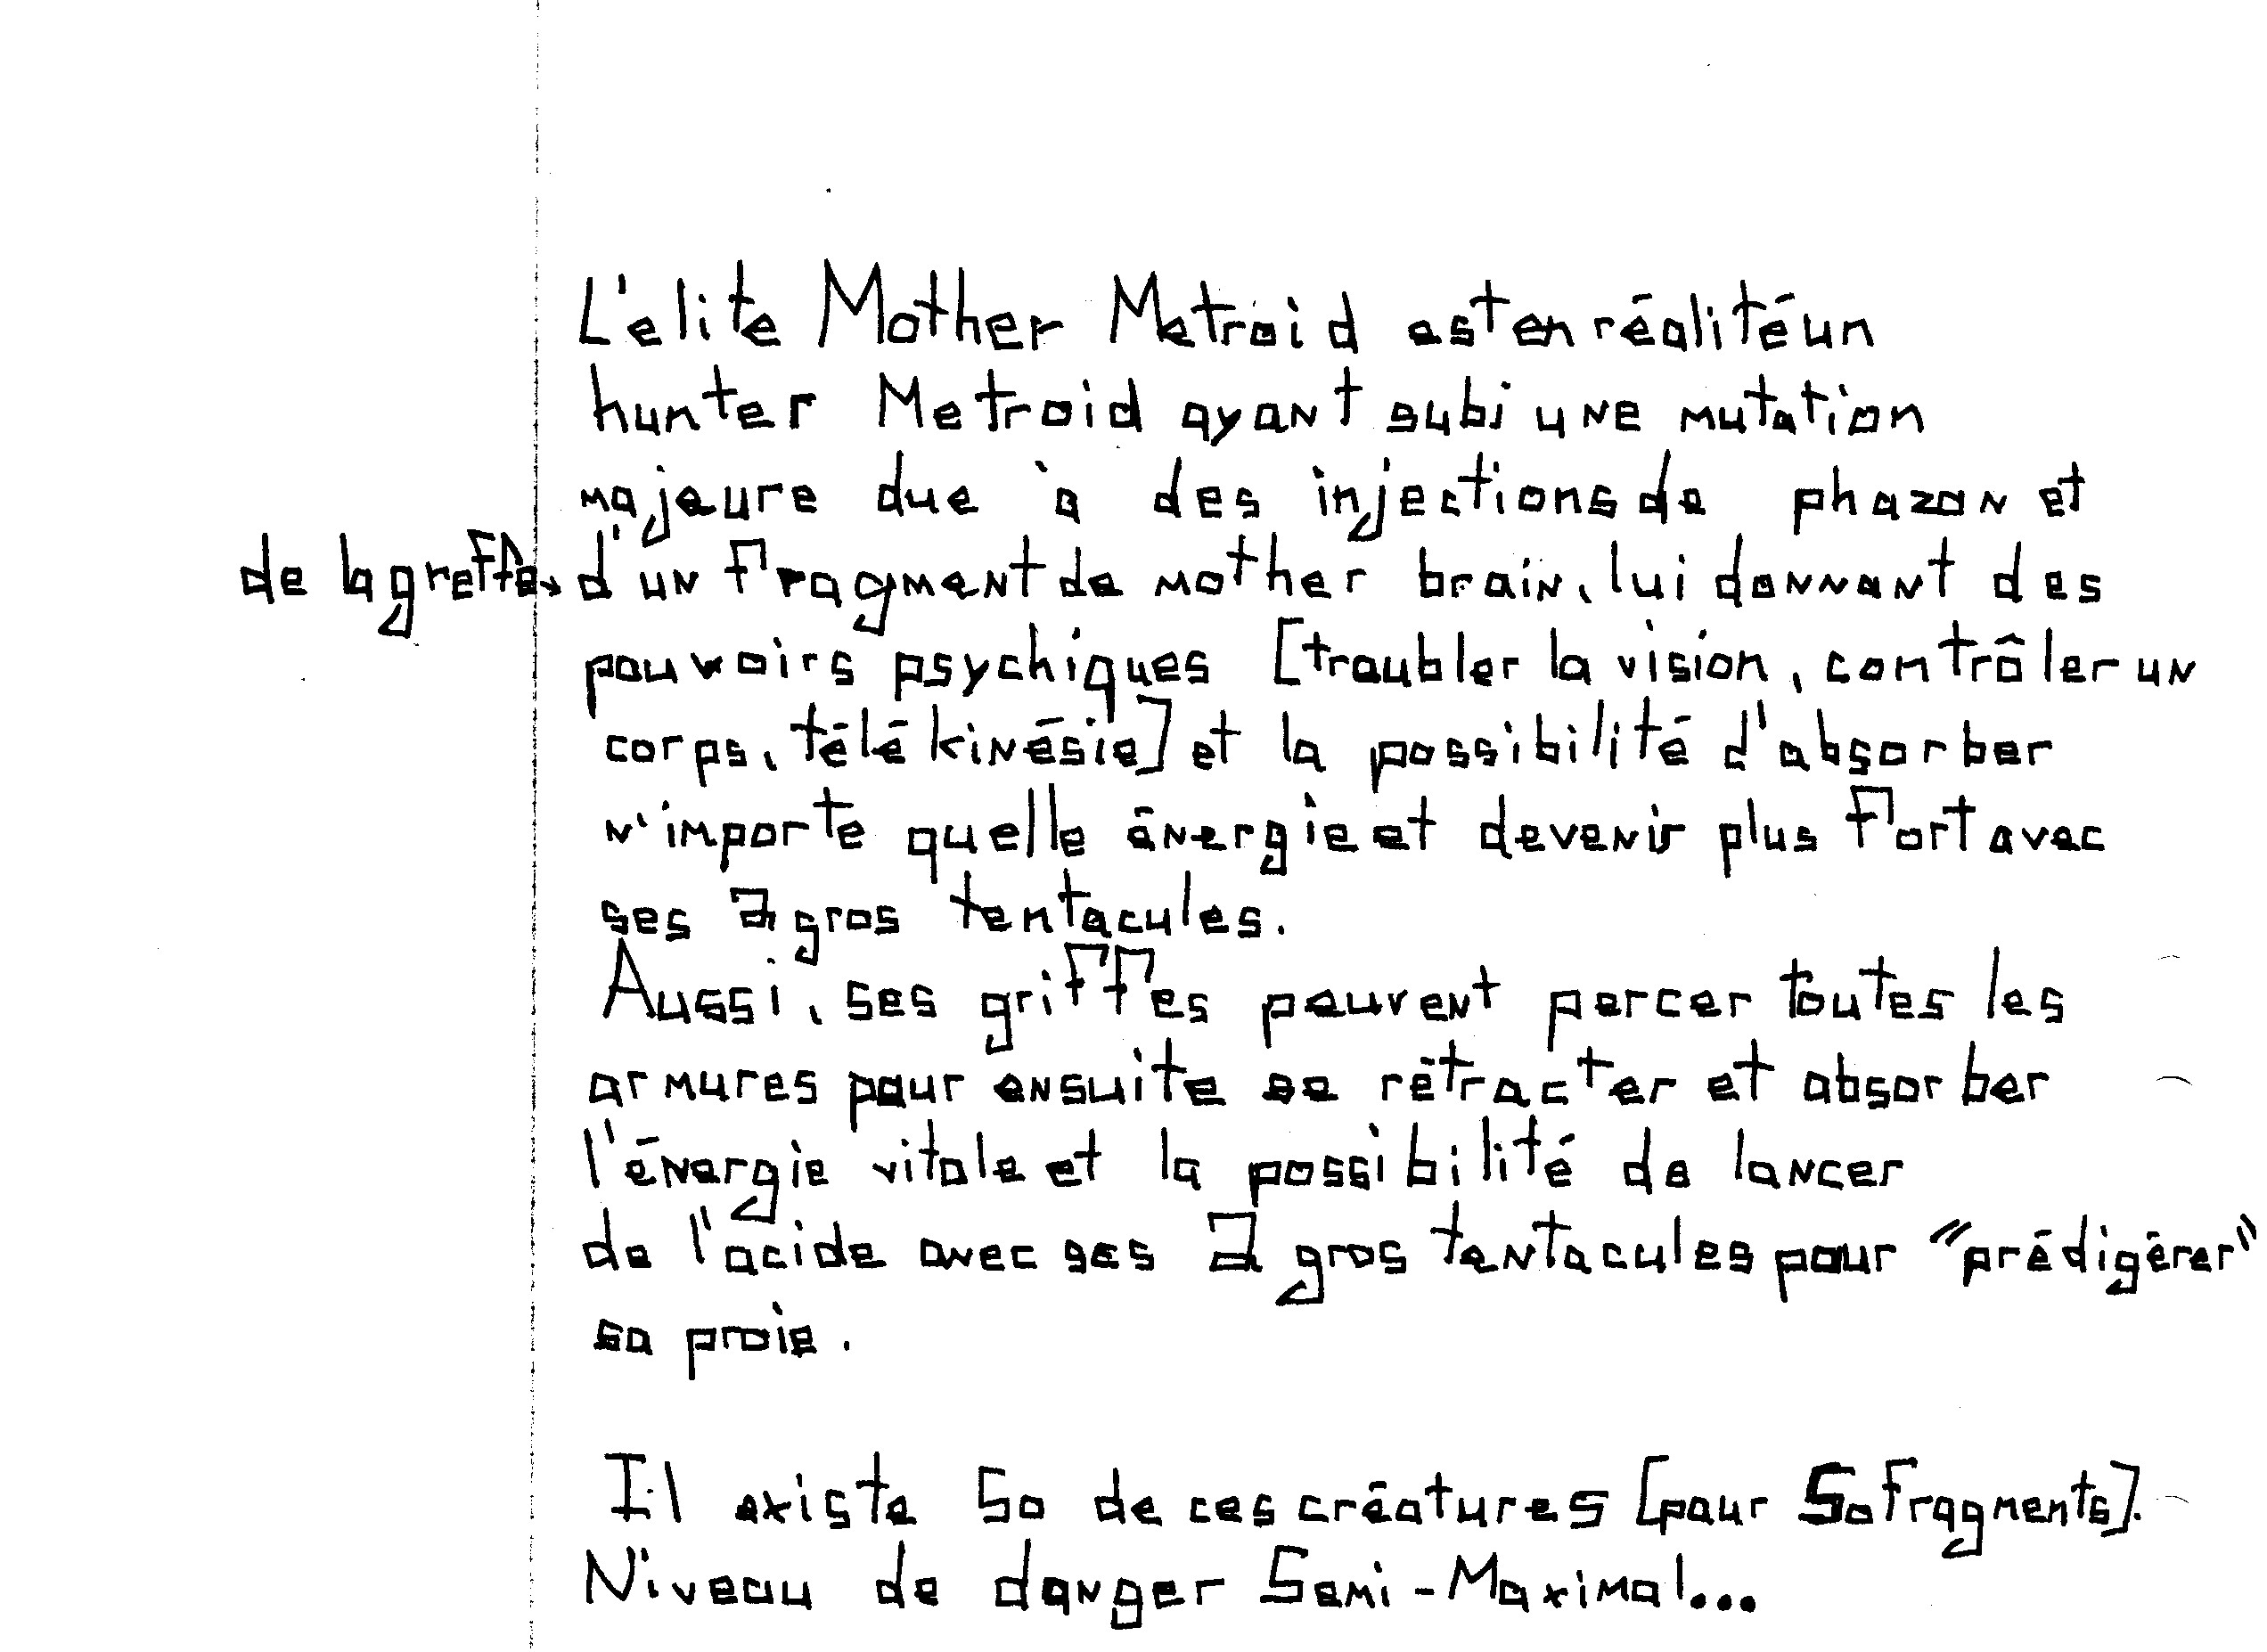 L'elite Mother Metroid est en réalité un
hunter Metroid ayant subi une mutation
majeure due à des injections de phazon et
de la greffe d'un fragment de mother brain, lui donnant des
pouvoirs psychiques [troubler la vision, contrôler un
corps, télékinésie] et la possibilité d'absorber
n'importe quelle énergie et devenir plus fort avec
ses 2 gros tentacules.
Aussi, ses griffes peuvent percer toutes les
armures pour ensuite se rétracter et absorber
l'énergie vitale et la possibilité de lancer
de l'acide avec ses 2 gros tentacules pour "prédigérer"
sa proie.
Il existe 50 de ces créatures [pour 50 fragments].
Niveau de danger Semi-Maximal...